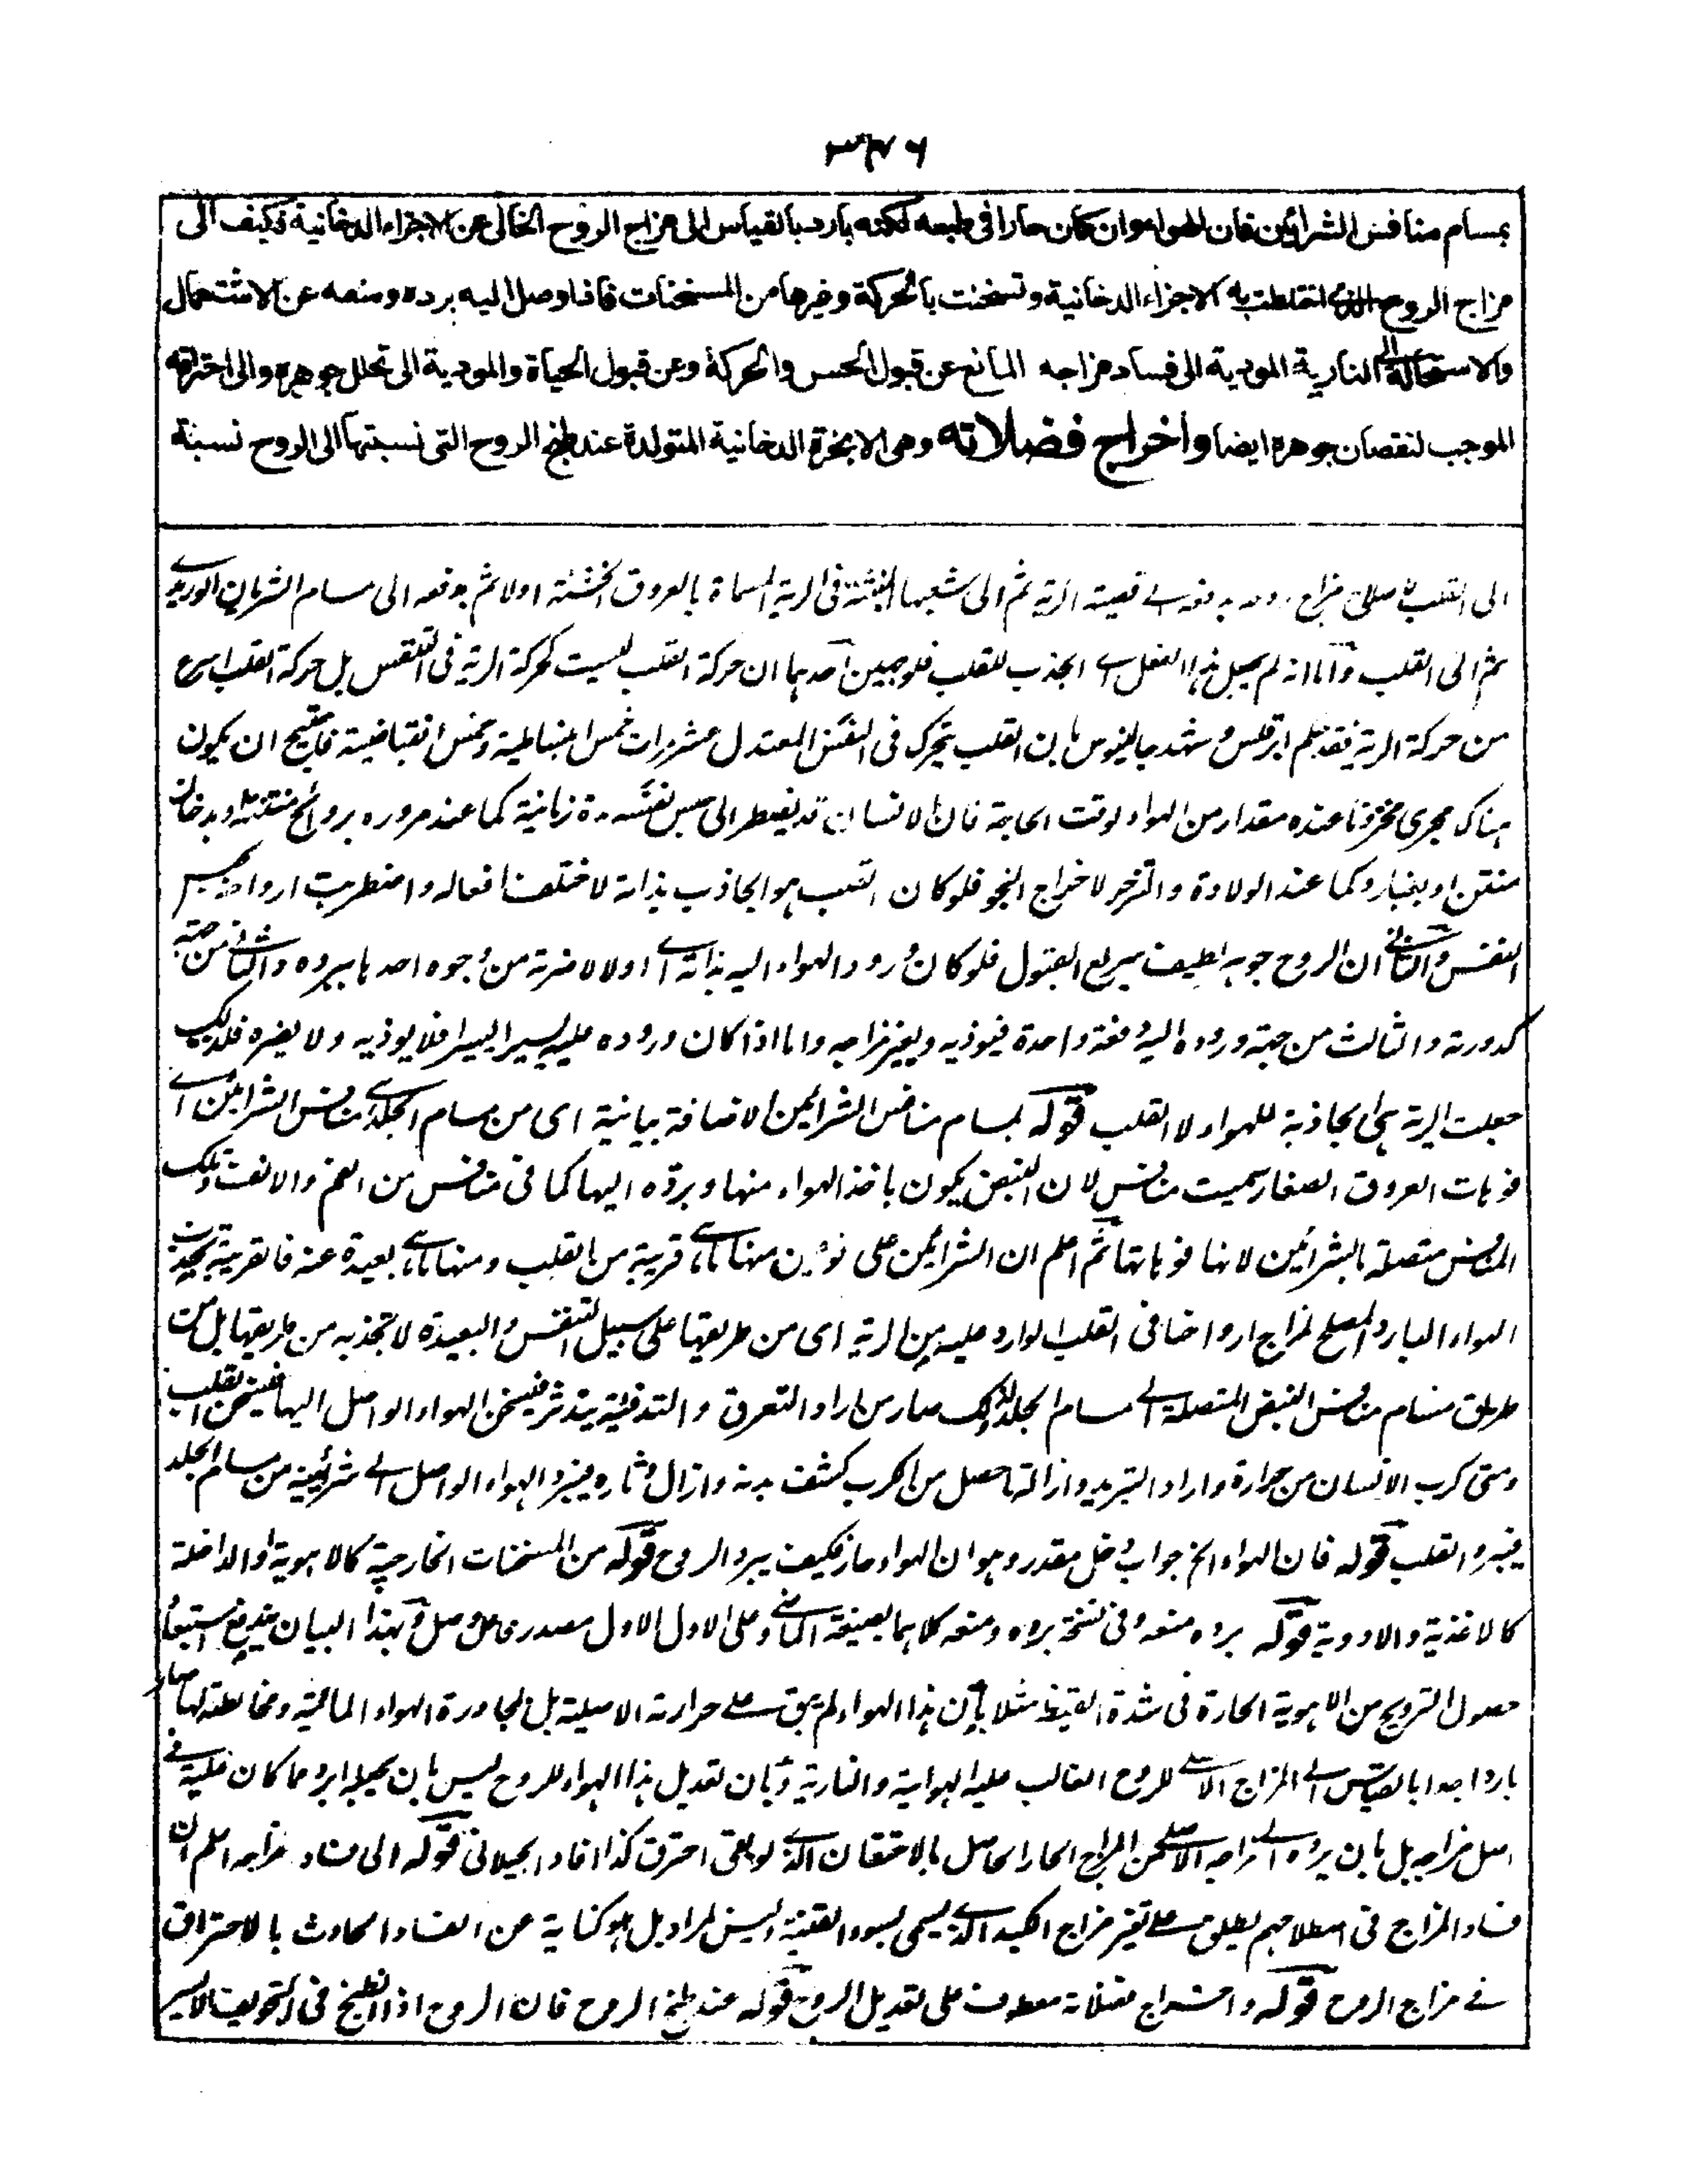 ٣٤٦
بمسام منافس الشرائين فان الهواء وان كان حارا في طبعه لكنه بارد بالقياس الى مزاج الروح الخالى عن الاجزاء الدخانية فكيف الى
مزاج الروح الذى اختلطت به الاجزاء الدخانية وتسخنت بالحركة وغيرها من المسخنات فاذا وصل اليه برده ومنعه عن الاشتعال
والاستحالة الى النارية المودية الى فساد مزاجه المانع عن قبول الحس والحركة وعن قبول الحياة والمودية الى تحلل جوهره والى احتراقه
الموجب لنقصان جوهره ايضا واخراج فضلاته وهى الابخرة الدخانية المتولدة عند طبخ الروح التى نسبتها الى الروح نسبة
الى القلب لاصلاح مزاج روحه يدفعه الے قصبته الرية ثم الى شعبها المنبثة فى الرية المسماة بالعروق الخشنة اولا ثم يدفعه الى مسام الشريان الوريدے
ثم الى القلب واما انه لم يجعل هذا الفعل اے الجذب للقلب فلوجهين احدهما ان حركة القلب ليست كحركة الرية فى التنفس بل حركة القلب اسرع
من حركة الرية فقد علم ابرقلس وشهد جالينوس بان القلب يتحرك فى النفس المعتدل عشر مرات خمس انبساطية وخمس انقباضية فاحتيج ان يكون
هناك مجرى مخزونا عنده مقدار من الهواء لوقت الحاجة فان الانسان قد يضطر الى حبس نفسه مدة زمانية كما عند مروره بروائح منتنة او بدخان
منتن او بغبار وكما عند الولادة والتزحر لاخراج النجو فلو كان القلب هو الجاذب بذاته لاختلف افعاله واضطربت ارواحه بحبس
النفس والثانے ان الروح جوهر لطيف سريع القبول فلو كان ورود الهواء اليه بذاته اے اولا لاضر به من وجوه احدها ببروده والثانے من جهة
كدورته والثالث من جهة وروده اليه دفعة واحدة فيوذيه ويغير مزاجه واما اذا كان وروده عليه يسيرا يسيرا فلا يوذيه ولا يضره فلذلك
جعلت الرية هى الجاذبة للهواء لا القلب قوله بمسام منافس الشرائين الاضافة بيانية اى من مسام الجلد اے منافس الشرائين اے
فوهات العروق الصغار سميت منافس لان النبض يكون باخذ الهواء منها وبرده اليها كما فى منافس من الفم والانف وتلك
المنافس متصلة بالشرائين لانها فوهاتها ثم اعلم ان الشرائين على نوعين منها ماهے قريبة من القلب ومنها ماهے بعيدة عنه فالقريبة تجذب
الهواء البارد المصلح لمزاج ارواحنا فى القلب الوارد عليه من الرية اى من طريقها على سبيل التنفس والبعيدة لا تجذبه من طريقها بل من
طريق مسام منافس النبض المتصلة الے مسام الجلد ولذلك صار من اراد التعرق والتدفئة يتدثر فيسخن الهواء الواصل اليها فيسخن القلب
ومتى كرب الانسان من حرارة واراد التبريد وازالة ما حصل من الكرب كشف بدنه وازال دثاره فيبرد الهواء الواصل الے شرائينه من مسام الجلد
فيبرد القلب قوله فان الهواء الخ جواب دخل مقدر وهو ان الهواء حار فكيف يبرد الروح قوله من المسخنات الخارجية كالاهوية او الداخلة
كالاغذية والادوية قوله برده منعه وفى نسخة برده ومنعه كلاهما بصيغة الماضے وعلى الاول الاول مصدر فاعل وصل وبهذا البيان يندفع استبعاد
حصول الترويح من الاهوية الحارة فى شدة القيظ مثلا بان هذا الهواء لم يبق علے حرارته الاصلية بل لمجاورة الهواء المائية ومخالطته لها صار
باردا جدا بالقياس الے المزاج الاصلے للروح الغالب عليه الهوائية والنارية وبان تعديل هذا الهواء للروح ليس بان يجعله ابرد مما كان عليه فے
اصل مزاجه بل بان يرده الے مزاجه الاصلے عن المزاج الحار الحاصل بالاحتقان الذے لو بقى احترق كذا افاد الجيلانى قوله الى فساد مزاجه اعلم ان
فساد المزاج فى اصطلاحهم يطلق علے تغير مزاج الكبد الذے يسمى بسوء القنية وليس المراد بل هو كناية عن الفساد الحادث بالاحتراق
فے مزاج الروح قوله واخراج فضلاته معطوف على تعديل الروح قوله عند طبخ الروح فان الروح اذا انطبخ فى التجويف الايسر